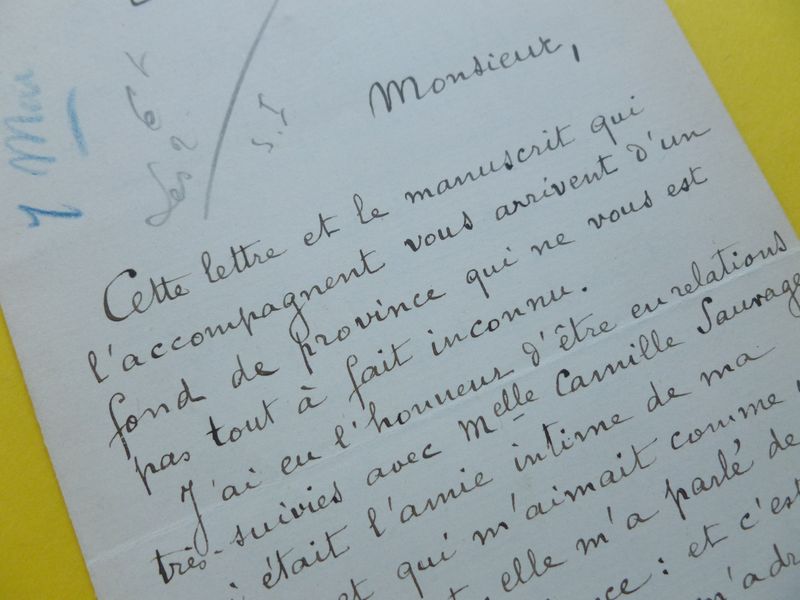 7 Mai
Monsieur,
Cette lettre et le manuscrit qui
l'accompagnent vous arrivent d'un
fond de province qui ne vous est
pas tout à fait inconnu.
J'ai eu l'honneur d'être en relations
très-suivies avec Melle Camille Sauvage
était l'amie intime de ma
et qui m'aimait comme
elle m'a parlé de
: et c'est
m'adr